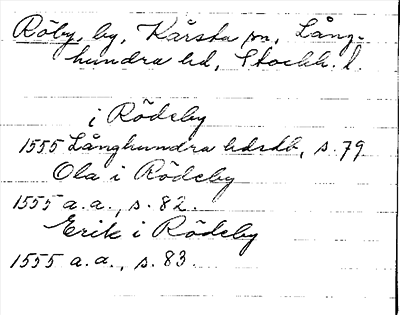 Röby, by, Kårsta sn, Lång-
hundra hd, Stockh. l.
i Rödeby
1555 Långhundra hdrdb, s. 79
Ola i Rödeby
1555 a.a., s. 82.
Erik i Rödeby
1555 a.a., s. 83